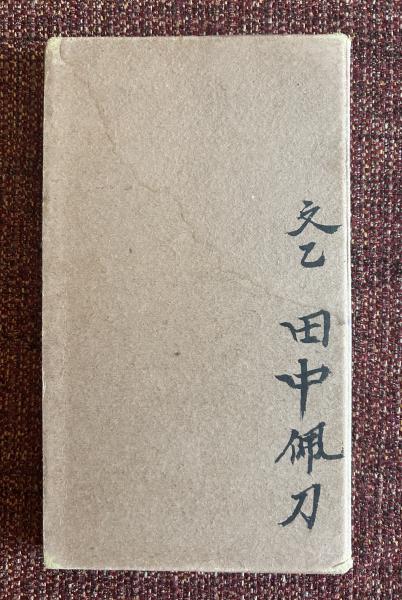 文乙 田中佩刀